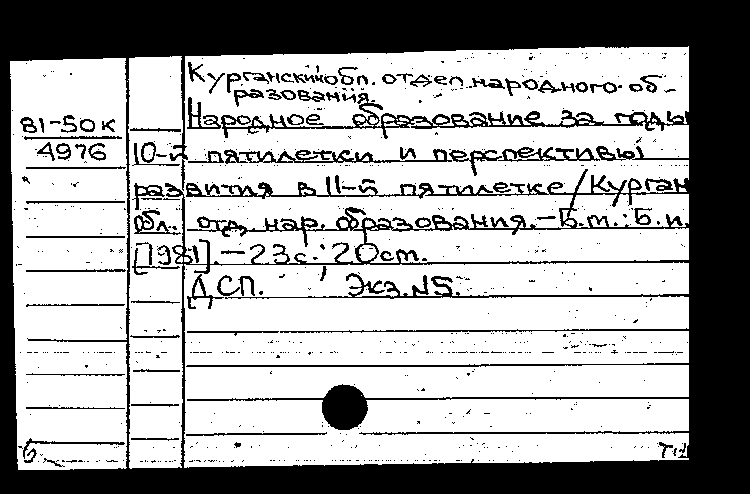 Курганский обл. отдел народного об-
разования.
81-50к
Народное образование за годы
4976
10-й пятилетки и перспективы
развития в 11-й пятилетке / Курган
обл. отд. нар. образования. - Б.м.: Б.и.
[1981]. - 23с.; 20см.
ДСП. Экз. №5.
6